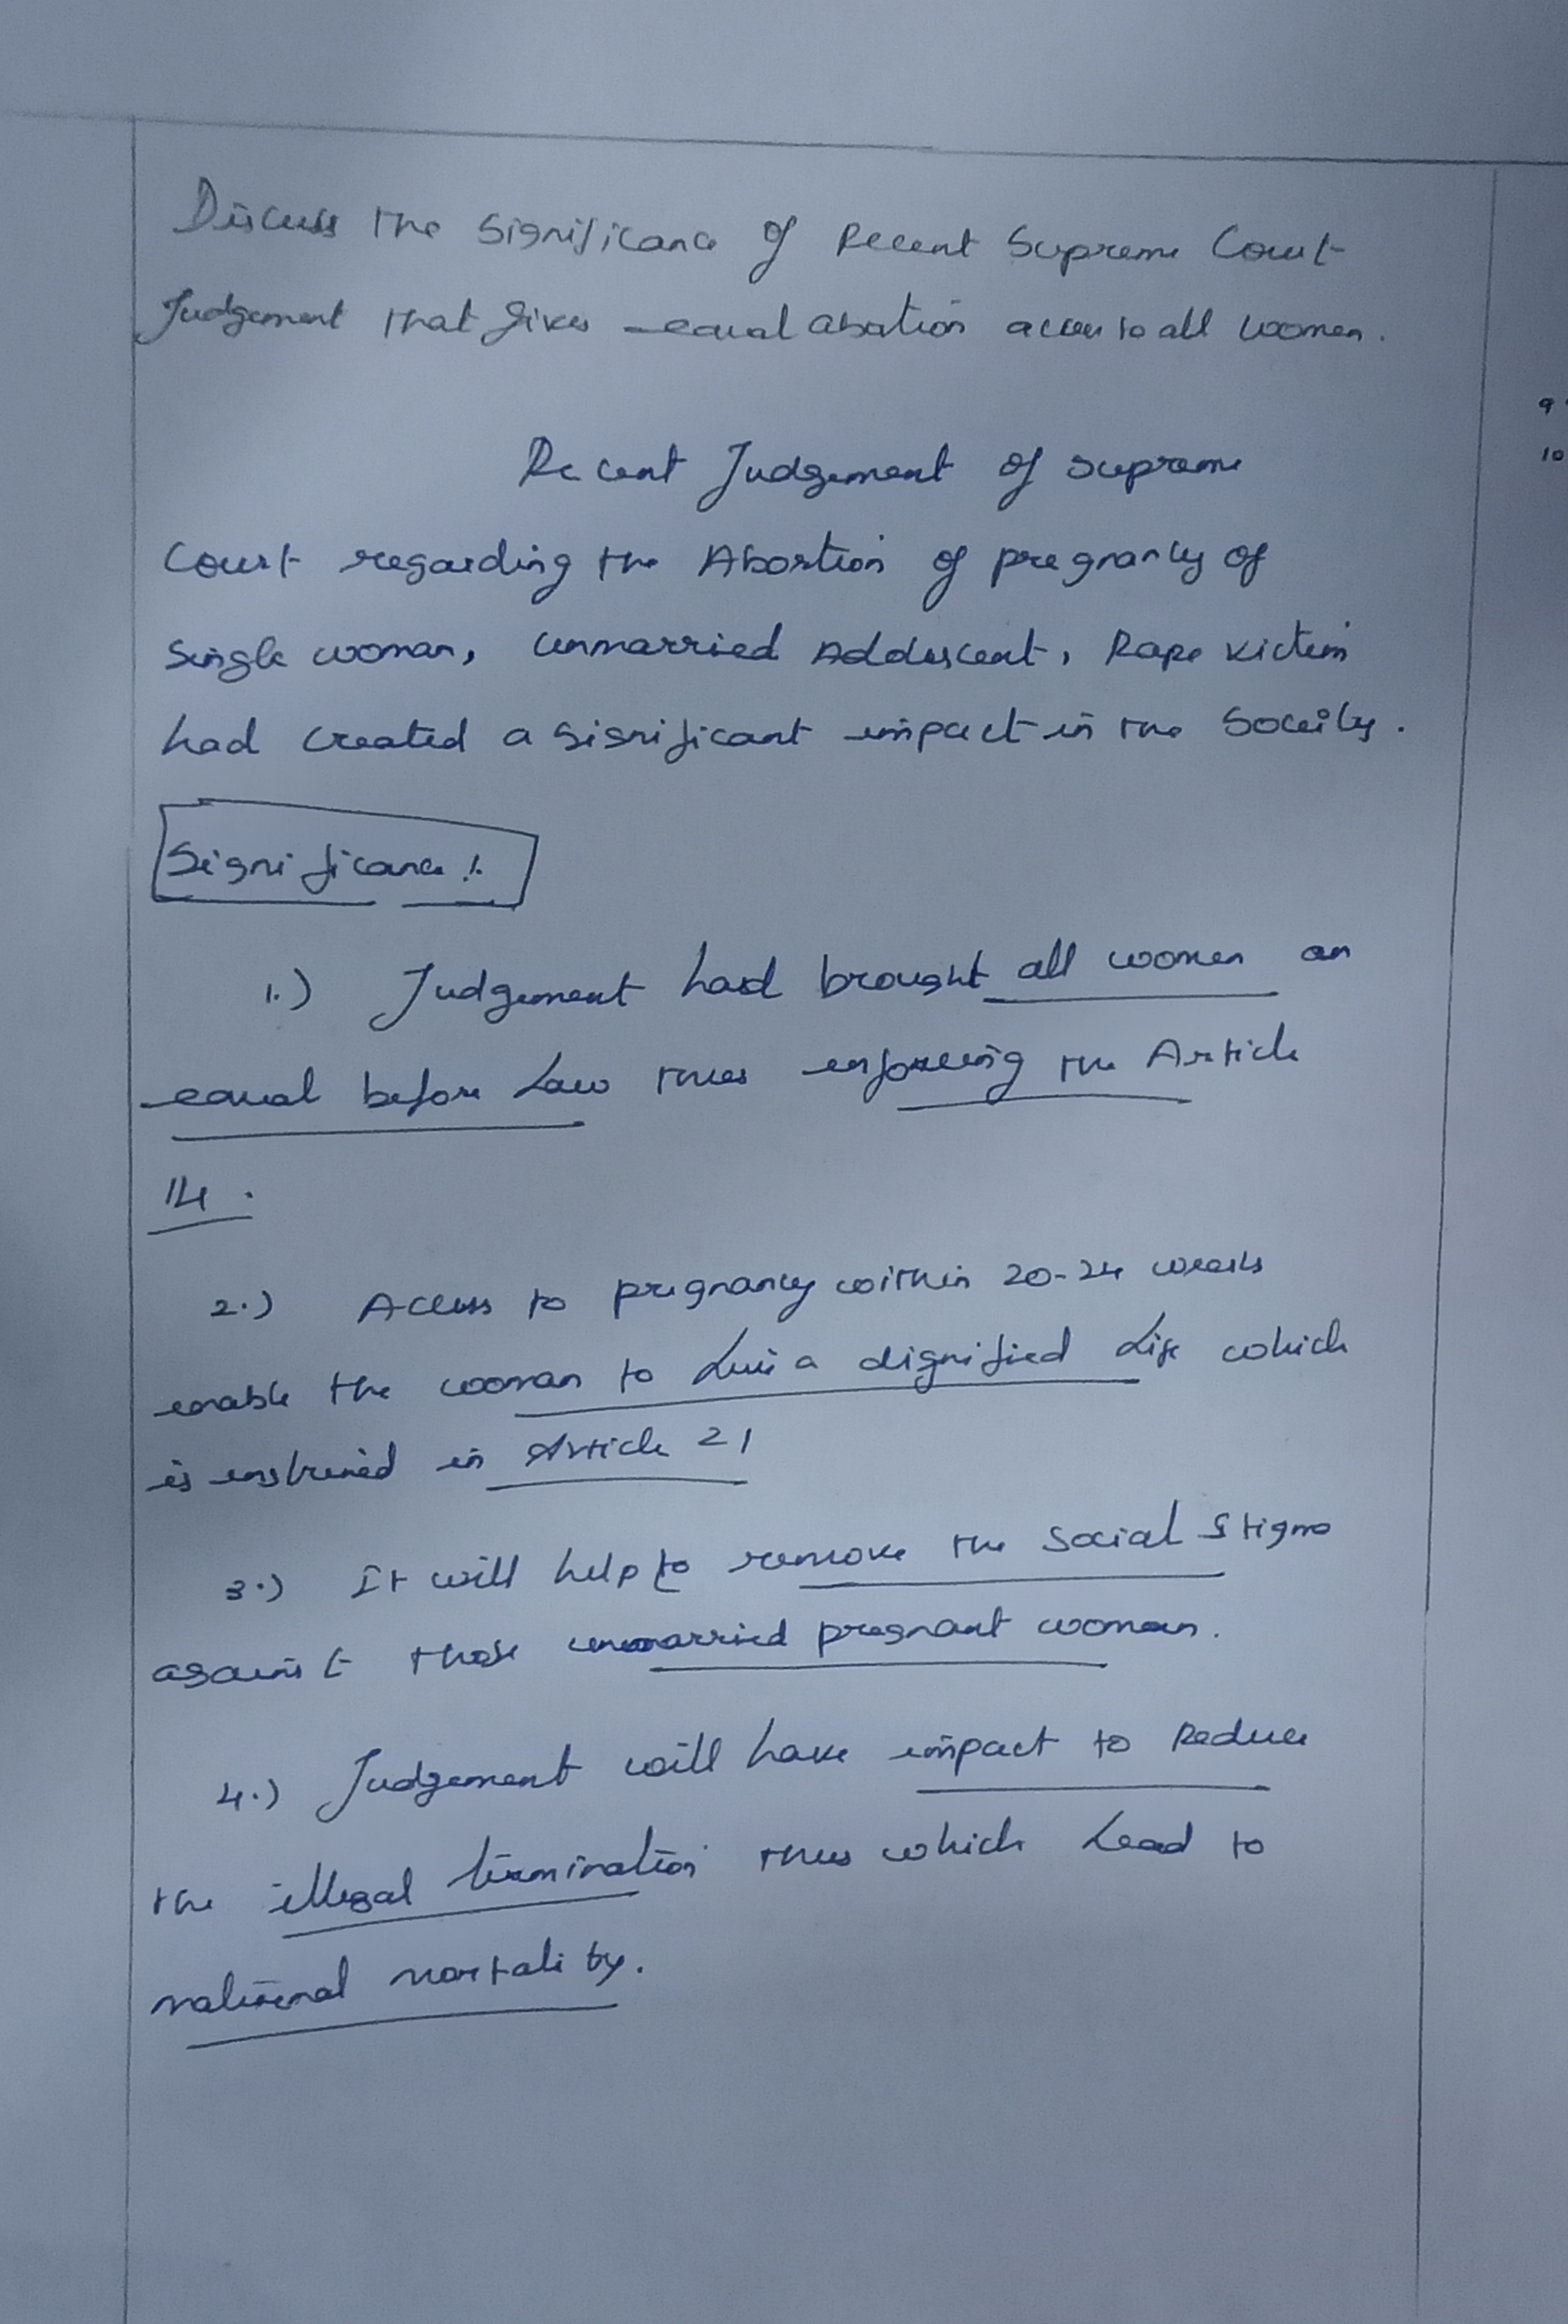 Discuss the Significance of Recent Supreme Court
Judgement that gives equal abortion access to all women.
9
10
Recent Judgement of supreme
Court regarding the Abortion of pregnancy of
single woman, unmarried Addolescent, Rape victim
had created a significant impact in the Soceity.
Significance :-
1.) Judgement had brought all women an
equal before Law thus enforcing the Article
14.
2.) Access to pregnancy within 20-24 weeks
enable the woman to live a dignified life which
is enshrined in Article 21
3.) It will help to remove the social stigma
against those unmarried pregnant woman.
4.) Judgement will have impact to Reduce
the illegal termination thus which Lead to
mortality.